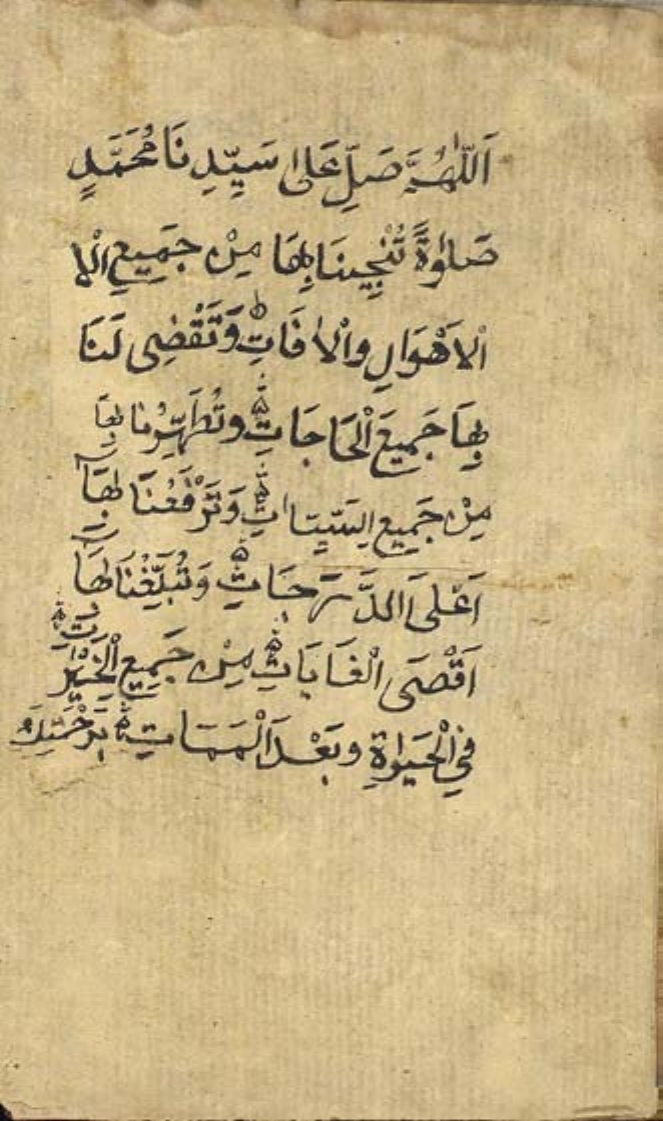 اَللّٰهُمَّ صَلِّ عَلٰى سَيِّدِنَا مُحَمَّدٍ
صَلٰوةً تُنْجِيْنَا بِهَا مِنْ جَمِيْعِ الْا
الْاَهْوَالِ وَالْاٰفَاتِ وَتَقْضِى لَنَا
بِهَا جَمِيْعَ الْحَاجَاتِ وَتُطَهِّرُنَا بِهَا
مِنْ جَمِيْعِ السَّيِّئَاتِ وَتَرْفَعُنَا بِهَا
اَعْلَى الدَّرَجَاتِ وَتُبَلِّغُنَا بِهَا
اَقْصَى الْغَايَاتِ مِنْ جَمِيْعِ الْخَيْرَاتِ
فِى الْحَيٰوةِ وَبَعْدَ الْمَمَاتِ بِرَحْمَتِكَ